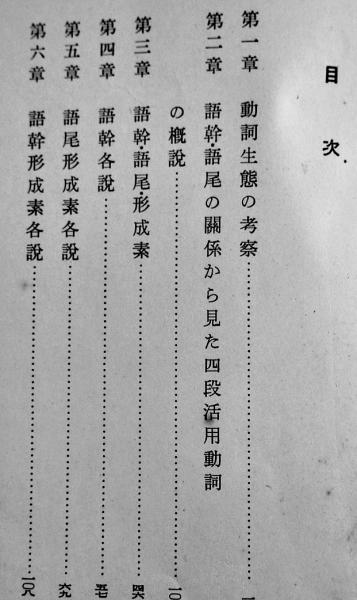 目次
第一章 動詞生態の考察……………一
第二章 語幹・語尾の關係から見た四段活用動詞
の概說……………一〇
第三章 語幹・語尾・形成素……………四六
第四章 語幹各說……………五七
第五章 語尾形成素各說……………六九
第六章 語幹形成素各說……………一〇八